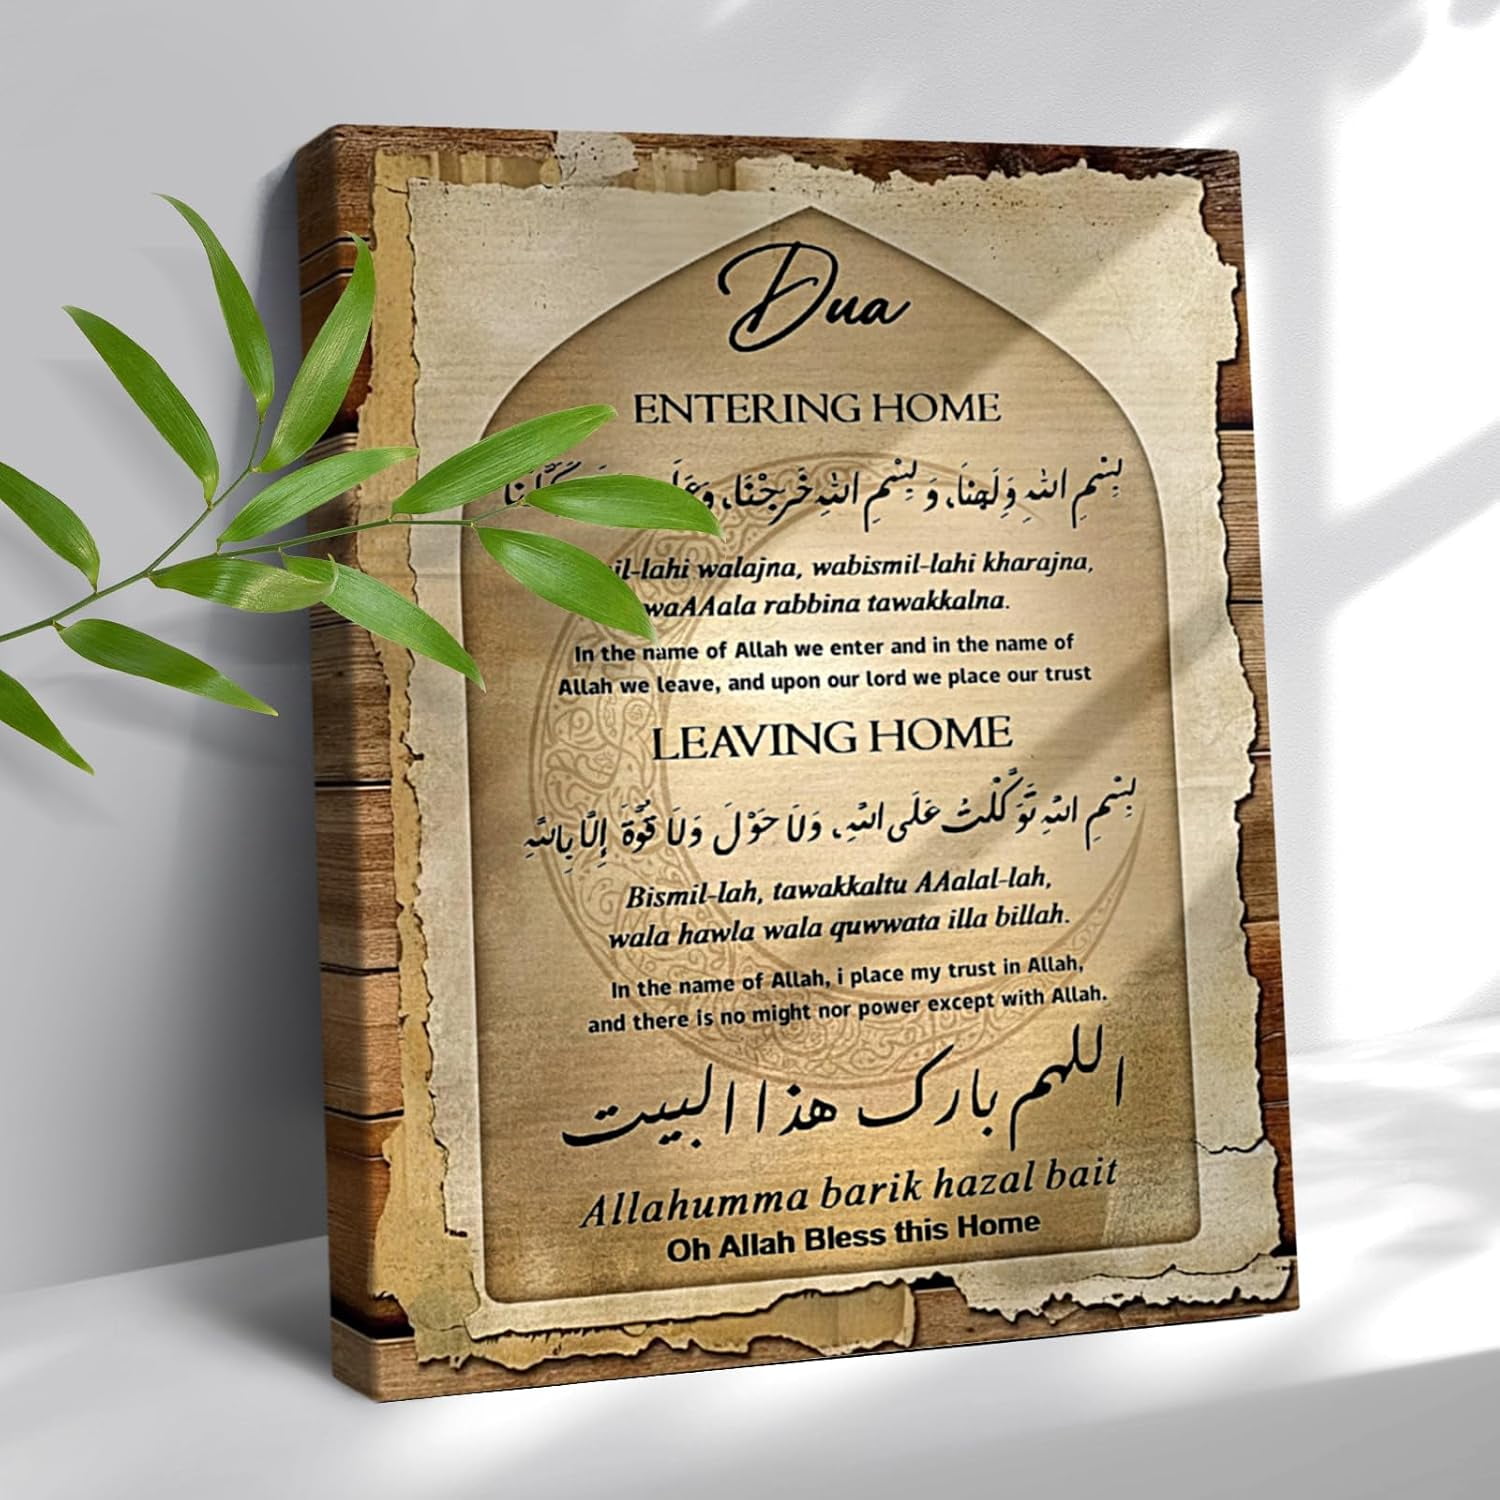 Dua
ENTERING HOME
بِسْمِ اللهِ وَلَجْنَا، وَ بِسْمِ اللهِ خَرَجْنَا،
il-lahi walajna, wabismil-lahi kharajna,
waAAala rabbina tawakkalna.
In the name of Allah we enter and in the name of
Allah we leave, and upon our lord we place our trust
LEAVING HOME
بِسْمِ اللهِ تَوَكَّلْتُ عَلَى اللهِ، وَلَا حَوْلَ وَلَا قُوَّةَ إِلَّا بِاللهِ
Bismil-lah, tawakkaltu AAalal-lah,
wala hawla wala quwwata illa billah.
In the name of Allah, i place my trust in Allah,
and there is no might nor power except with Allah.
اللهم بارك هذا البيت
Allahumma barik hazal bait
Oh Allah Bless this Home